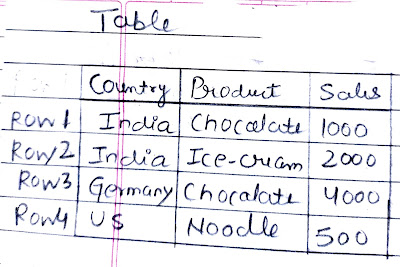 Table
Country Product Sales
Row1 India Chocalate 1000
Row2 India Ice-cream 2000
Row3 Germany Chocalate 4000
Row4 US Noodle 500